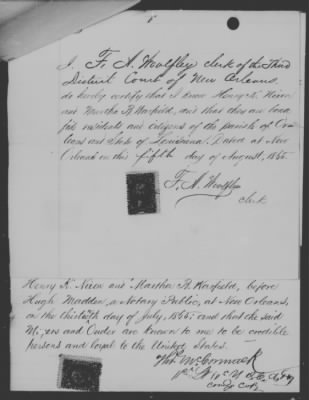 I, F. A. Woolfley clerk of the Third
District Court of New Orleans,
do hereby certify that I know Henry K. Nixon
and Martha R. Warfield, and that they are bona
fide residents and citizens of the parish of Or-
leans and State of Louisiana. Dated at New
Orleans on this fifth day of August, 1865.
F. A. Woolfley
clerk
Henry K. Nixon and Martha R. Warfield, before
Hugh Madden, a Notary Public, at New Orleans,
on the thirtieth day of July, 1865; and that the said
are known to me to be credible
persons and loyal to the United States.
McCormack